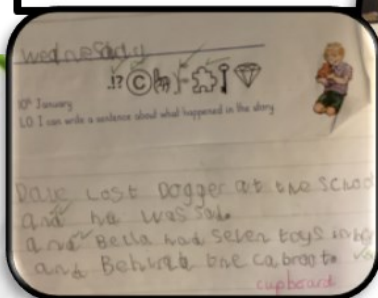 Wednesday
.!? ©
10th January
LO: I can write a sentence about what happened in the story
Dave Lost Dogger at the school
and he was sad.
and Bella had seven toys in
and Behind the cabroot
cupboard